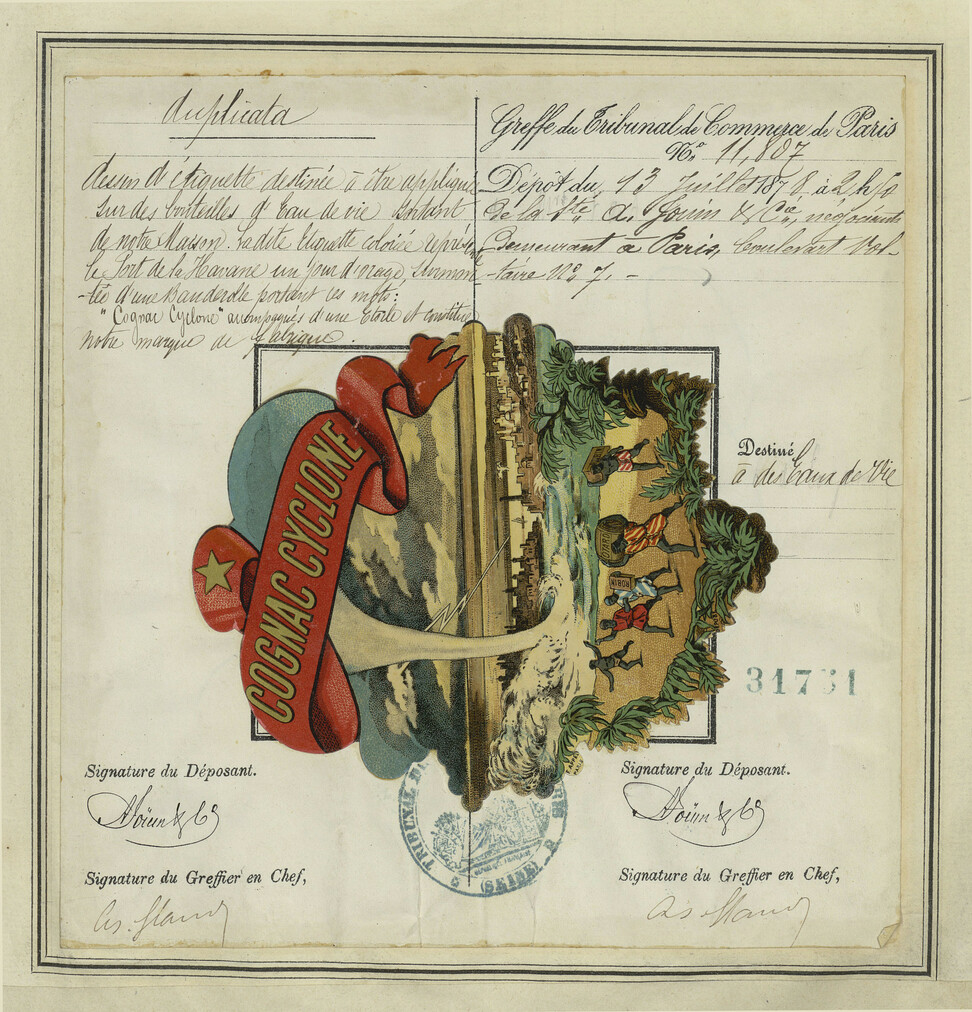 duplicata
dessin d'étiquette destinée à être appliquée
sur des bouteilles d'Eau de vie sortant
de notre Maison. La dite Etiquette coloriée représente
le Port de la Havane un jour d'orage, surmon
-tée d'une Banderolle portant ces mots:
"Cognac Cyclone" accompagnés d'une Etoile et constitue
notre marque de fabrique.
Greffe du Tribunal de Commerce de Paris
No. 11,807
Dépôt du 13 Juillet 1878 à 2 h
de la Sté Jouin & Cie, négociants
demeurant à Paris, boulevart Vol-
-taire No 7. -
COGNAC CYCLONE
ROBIN
Destiné
à des Eaux de Vie
31751
Signature du Déposant.
Signature du Déposant.
TRIBUNAL
(SEINE)
Signature du Greffier en Chef,
Signature du Greffier en Chef,